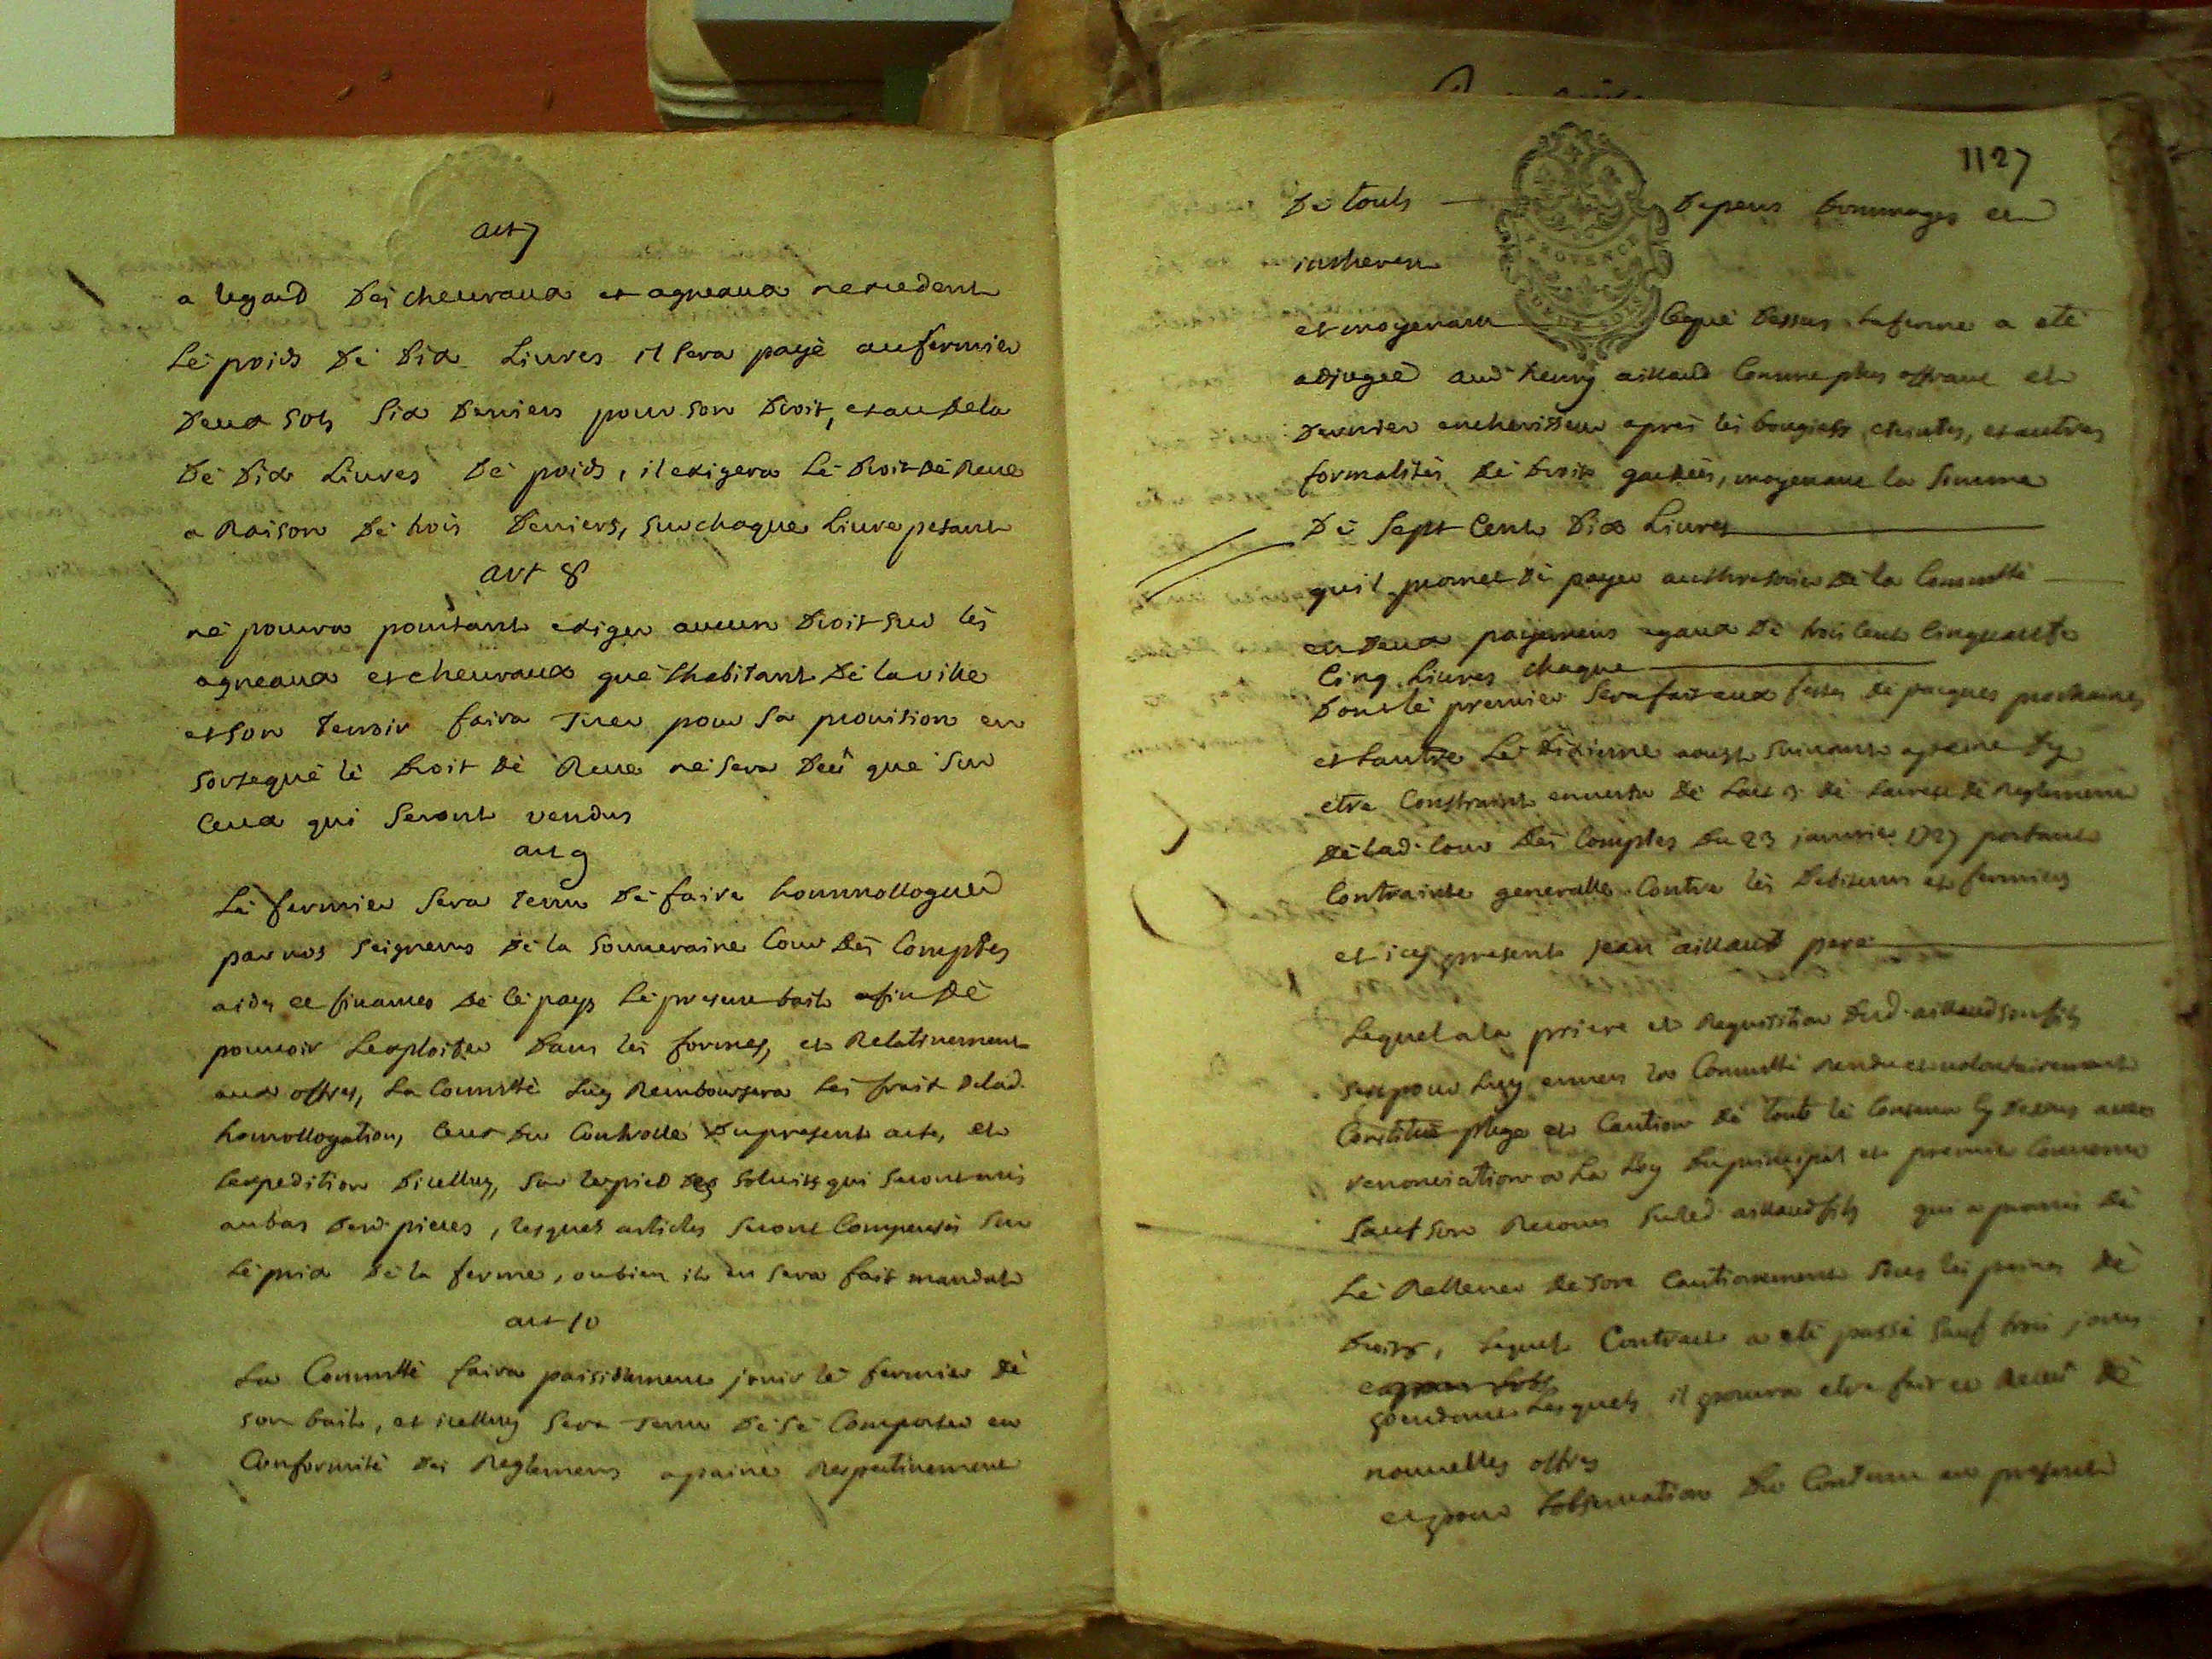 art 7
a legard des cheuraux et agneaux nexcedent
Le poids de dix Liures il sera payé au fermier
deux sols six deniers pour son droit, et au dela
de dix Liures de poids, il exigera le droit de Reue
a Raison de trois deniers, sur chaque Liure pesant
art 8
ne pourra pourtant exiger aucun droit sur les
agneaux et cheuraux que lhabitant de la ville
et son terroir faira Tuer pour sa prouision en
sorte que le droit de Reue ne sera deû que sur
Ceux qui seront vendus
art 9
Le fermier sera tenu de faire hommolloguer
par nos seigneurs de la souueraine Cour des Comptes
aides et finances de ce pays le present bail afin de
pouuoir Lexploiter dans les formes, et Relatiuement
aux offres, La Commté Luy Remboursera les frais delad.
homollogation, Ceux du Controlle du present acte, et
lexpedition dicelluy, sur le pied des soluit qui seront mis
au bas desd. pieces, lesquels articles seront Compensés sur
Le prix de la ferme, oubien il en sera fait mandat
art 10
La Commté faira paisiblement jouir le fermier de
son bail, et icelluy sera Tenu de se Comporter en
Conformité des Reglemens a paine Respectiuement
1127
de touts depens dommages et
interets
PROVENCE
et moyenant Ceque dessus La ferme a eté
adjugée aud. henry aillaud Comme plus offrant et
dernier encherisseur apres les bougies eteintes, et autres
formalités de droit gardées, moyenant la somme
de sept Cent dix Liures
quil promet de payer au thresorier de la Commté
en deux payemens egaux de trois Cent Cinquante
Cinq Liures chaque
dont le premier sera fait aux festes de pacques prochaines
et Lautre Le dixieme aoust suiuant a peine dy
etre Constraint en vertu de Lart 9 de Larrest de Reglement
de lad. Cour des Comptes du 23 januier 1727 portant
Contrainte generalle Contre les debiteurs et fermiers
et icy present jean aillaud pere
Lequel a la priere et Requisition dud. aillaud son fils
sest pour Luy enuers la Commté rendu et volontairement
Constitué plege et Caution de tout le Contenu cy dessus auec
renonciation a La Loy du principal et premier Conuenu
sauf son Recours sur led. aillaud fils qui a promis de
Le Relleuer de son Cautionement sous les peines de
droits, Lequel Contract a eté passé sauf trois jours
pendant Lesquels il pourra etre fait et Receu de
nouuelles offres
et pour lobseruation du Contenu au present